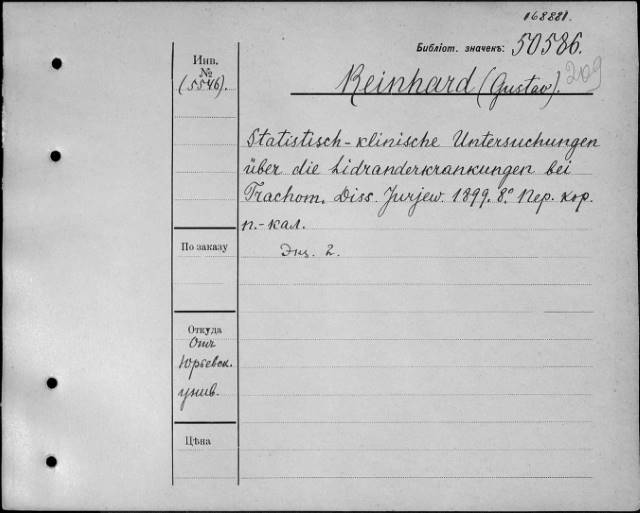 168881.
Библіот. значекъ: 50586.
Инв.
№
(5546).
Reinhard (Gustav). 209
Statistisch-klinische Untersuchungen
über die Lidranderkrankungen bei
Trachom. Diss. Jurjew. 1899. 8.° Пер. кор.
п.-кал.
По заказу
Экз. 2.
Откуда
Отъ
Юрьевск.
унив.
Цѣна